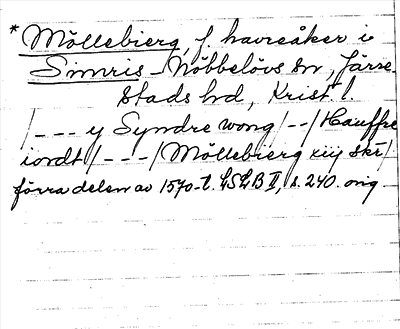 *Möllebierg, f. havreåker i
Simris-Nöbbelövs sn, Järre-
stads hd, Krist l.
/--- y Syndre wong /--/ Hauffre
iordt /---/ Möllebierg xiij skr/
förra delen av 1570-t. LSLB II, s. 240. orig